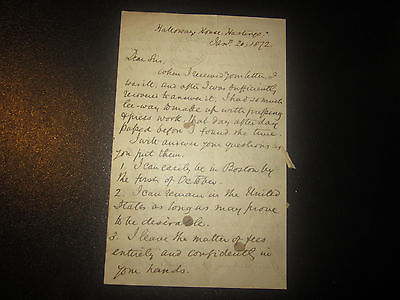 Holloway House, Hastings.
Sept. 20. 1872.
Dear Sir,
when I received your letter I
was ill, and after I was sufficiently
recovered to answer it, I had so much
lee-way to make up with pressing
& press work that day after day
passed before I found the time.
I will answer your questions as
you put them.
1. I can easily be in Boston by
the first of October.
2. I can remain in the United
States as long as may prove
to be desirable.
3. I leave the matter of fees
entirely and confidently in
your hands.